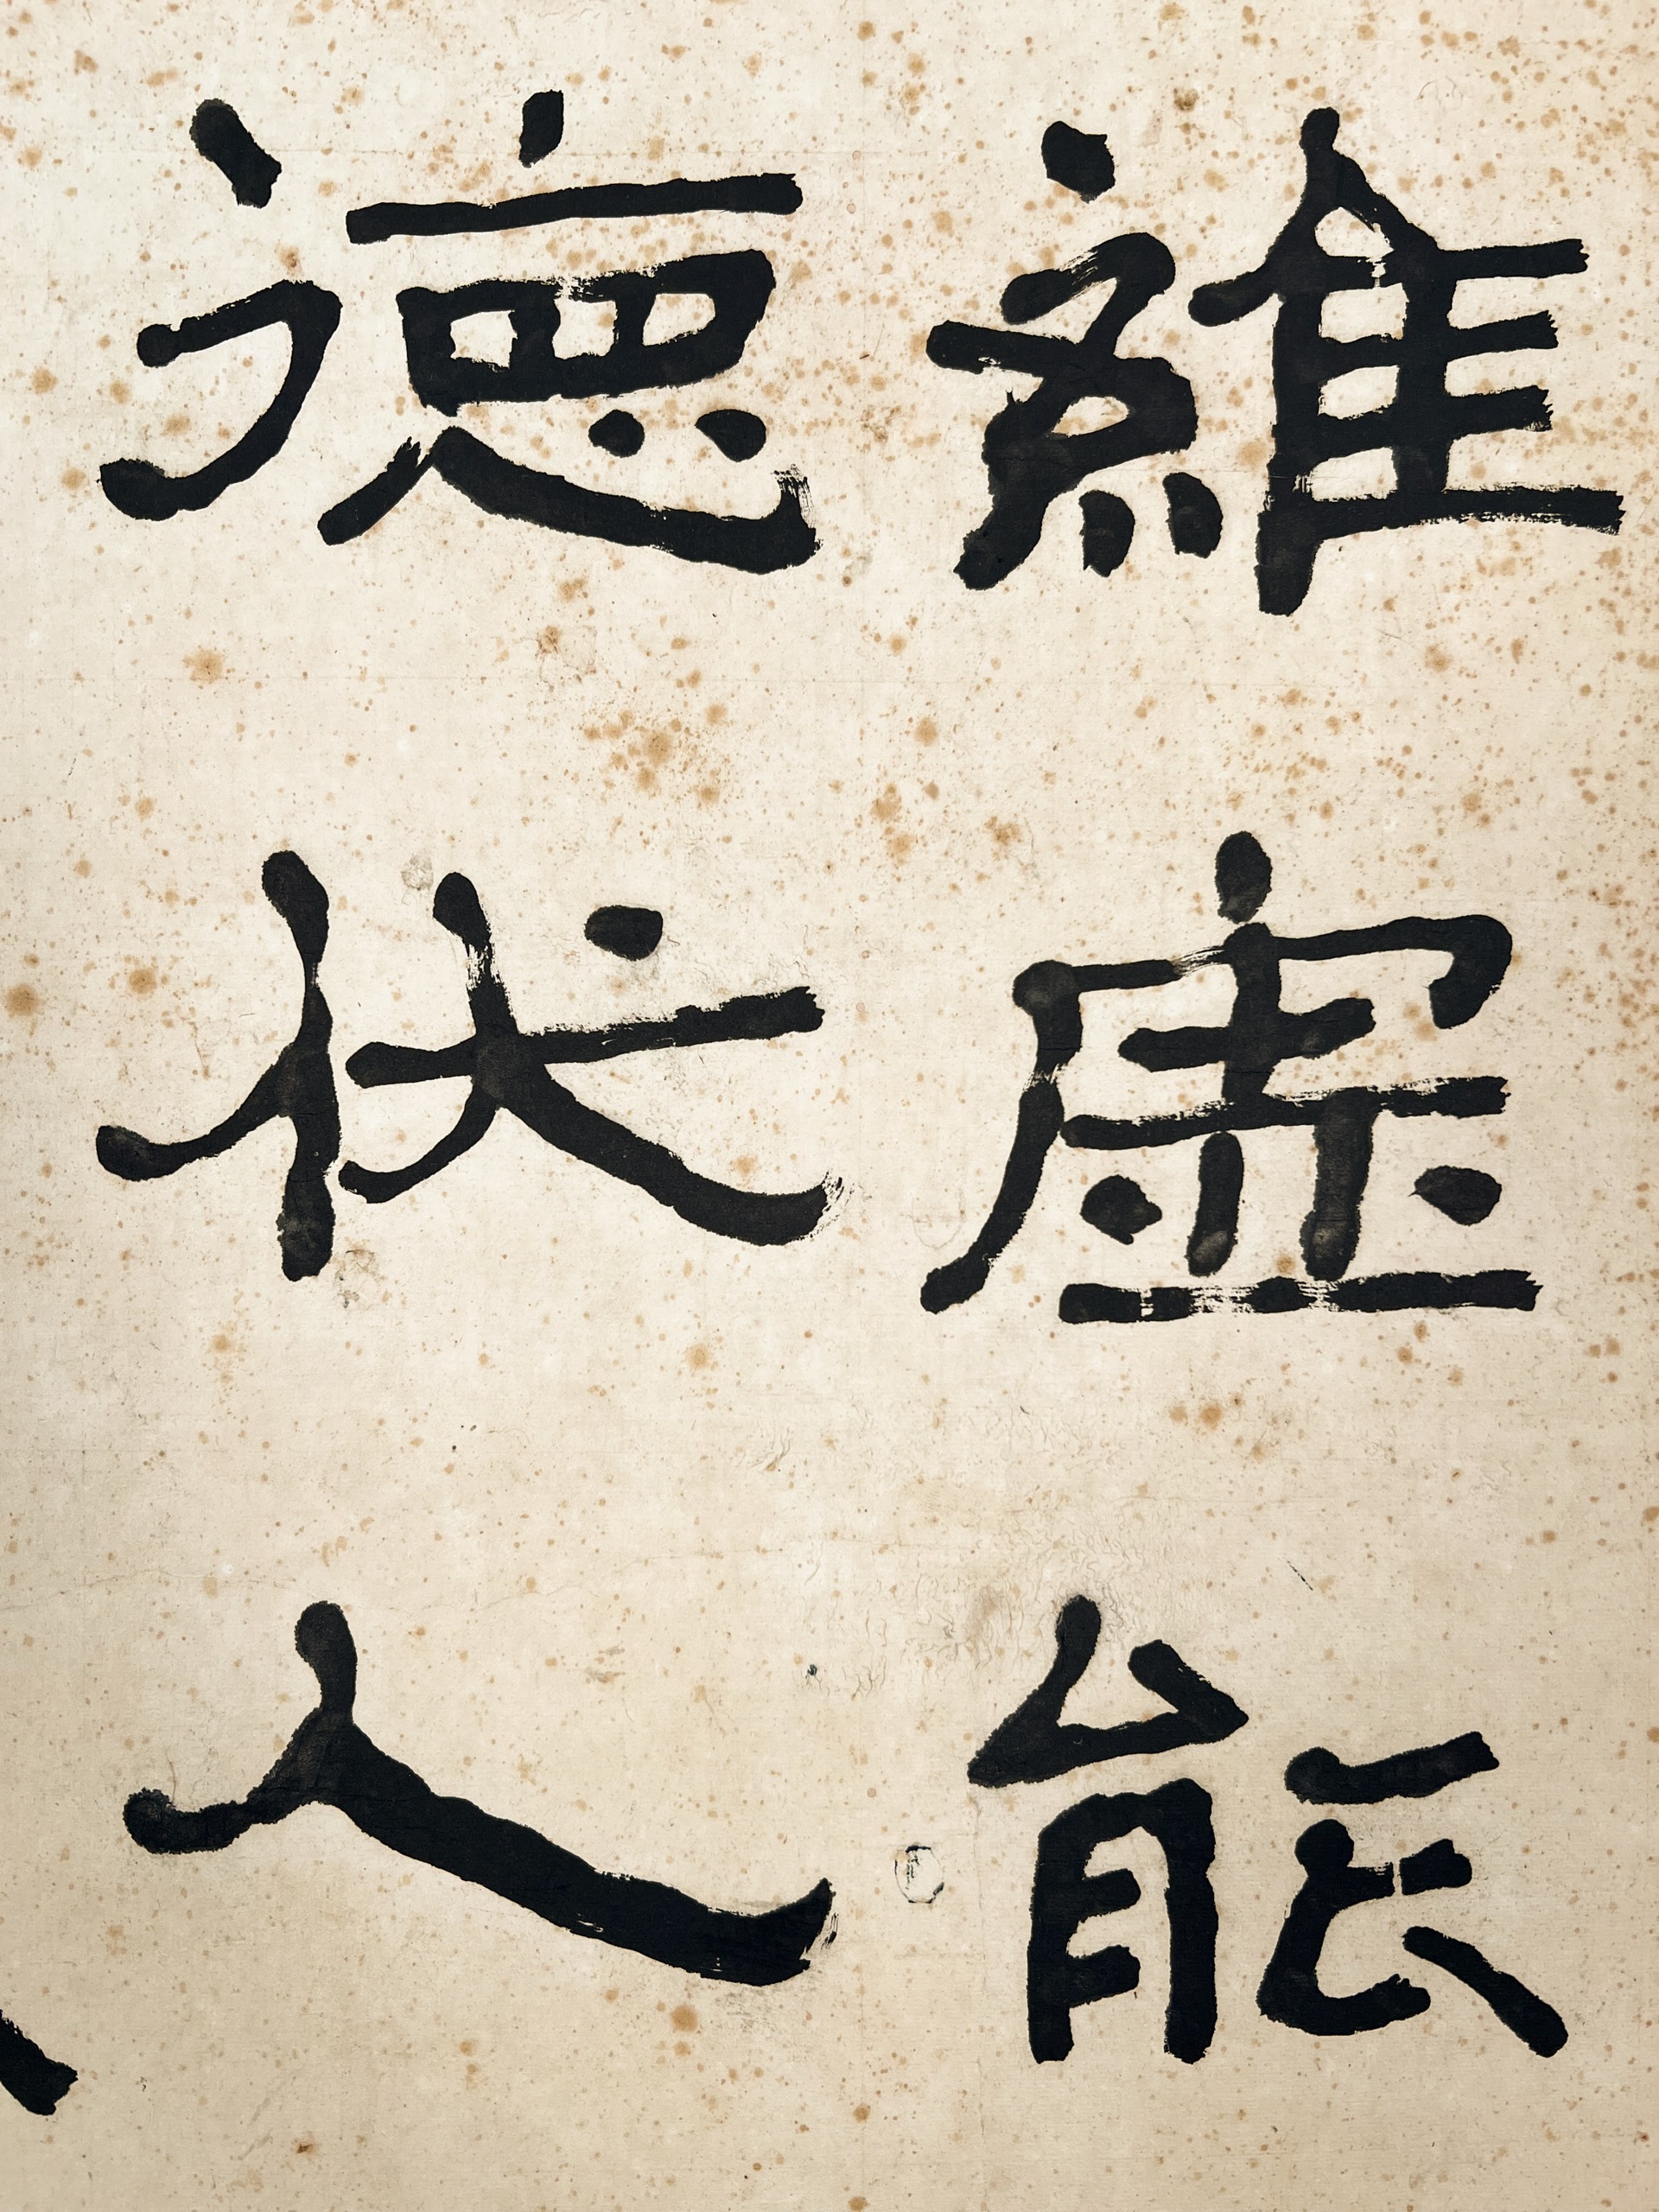 維虛能
德伏人